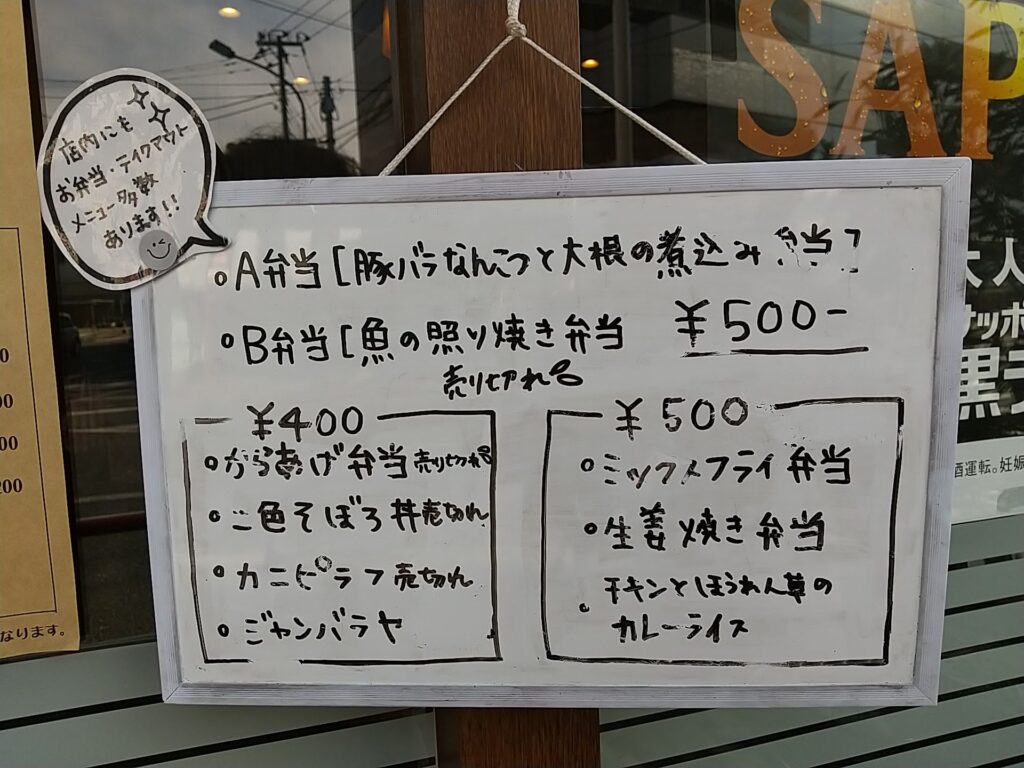 店内にも
お弁当・テイクアウト
メニュー多数
あります!!
SAP
。A弁当[豚バラなんこつと大根の煮込み弁当]
。B弁当[魚の照り焼き弁当 ¥500-
売り切れ
¥400
。からあげ弁当 売り切れ
。二色そぼろ丼 売切れ
。カニピラフ 売切れ
。ジャンバラヤ
¥500
。ミックスフライ弁当
。生姜焼き弁当
。チキンとほうれん草の
カレーライス
大人
サッポ
黒ラ
酒運転。妊娠
0
00
00
200
なります。